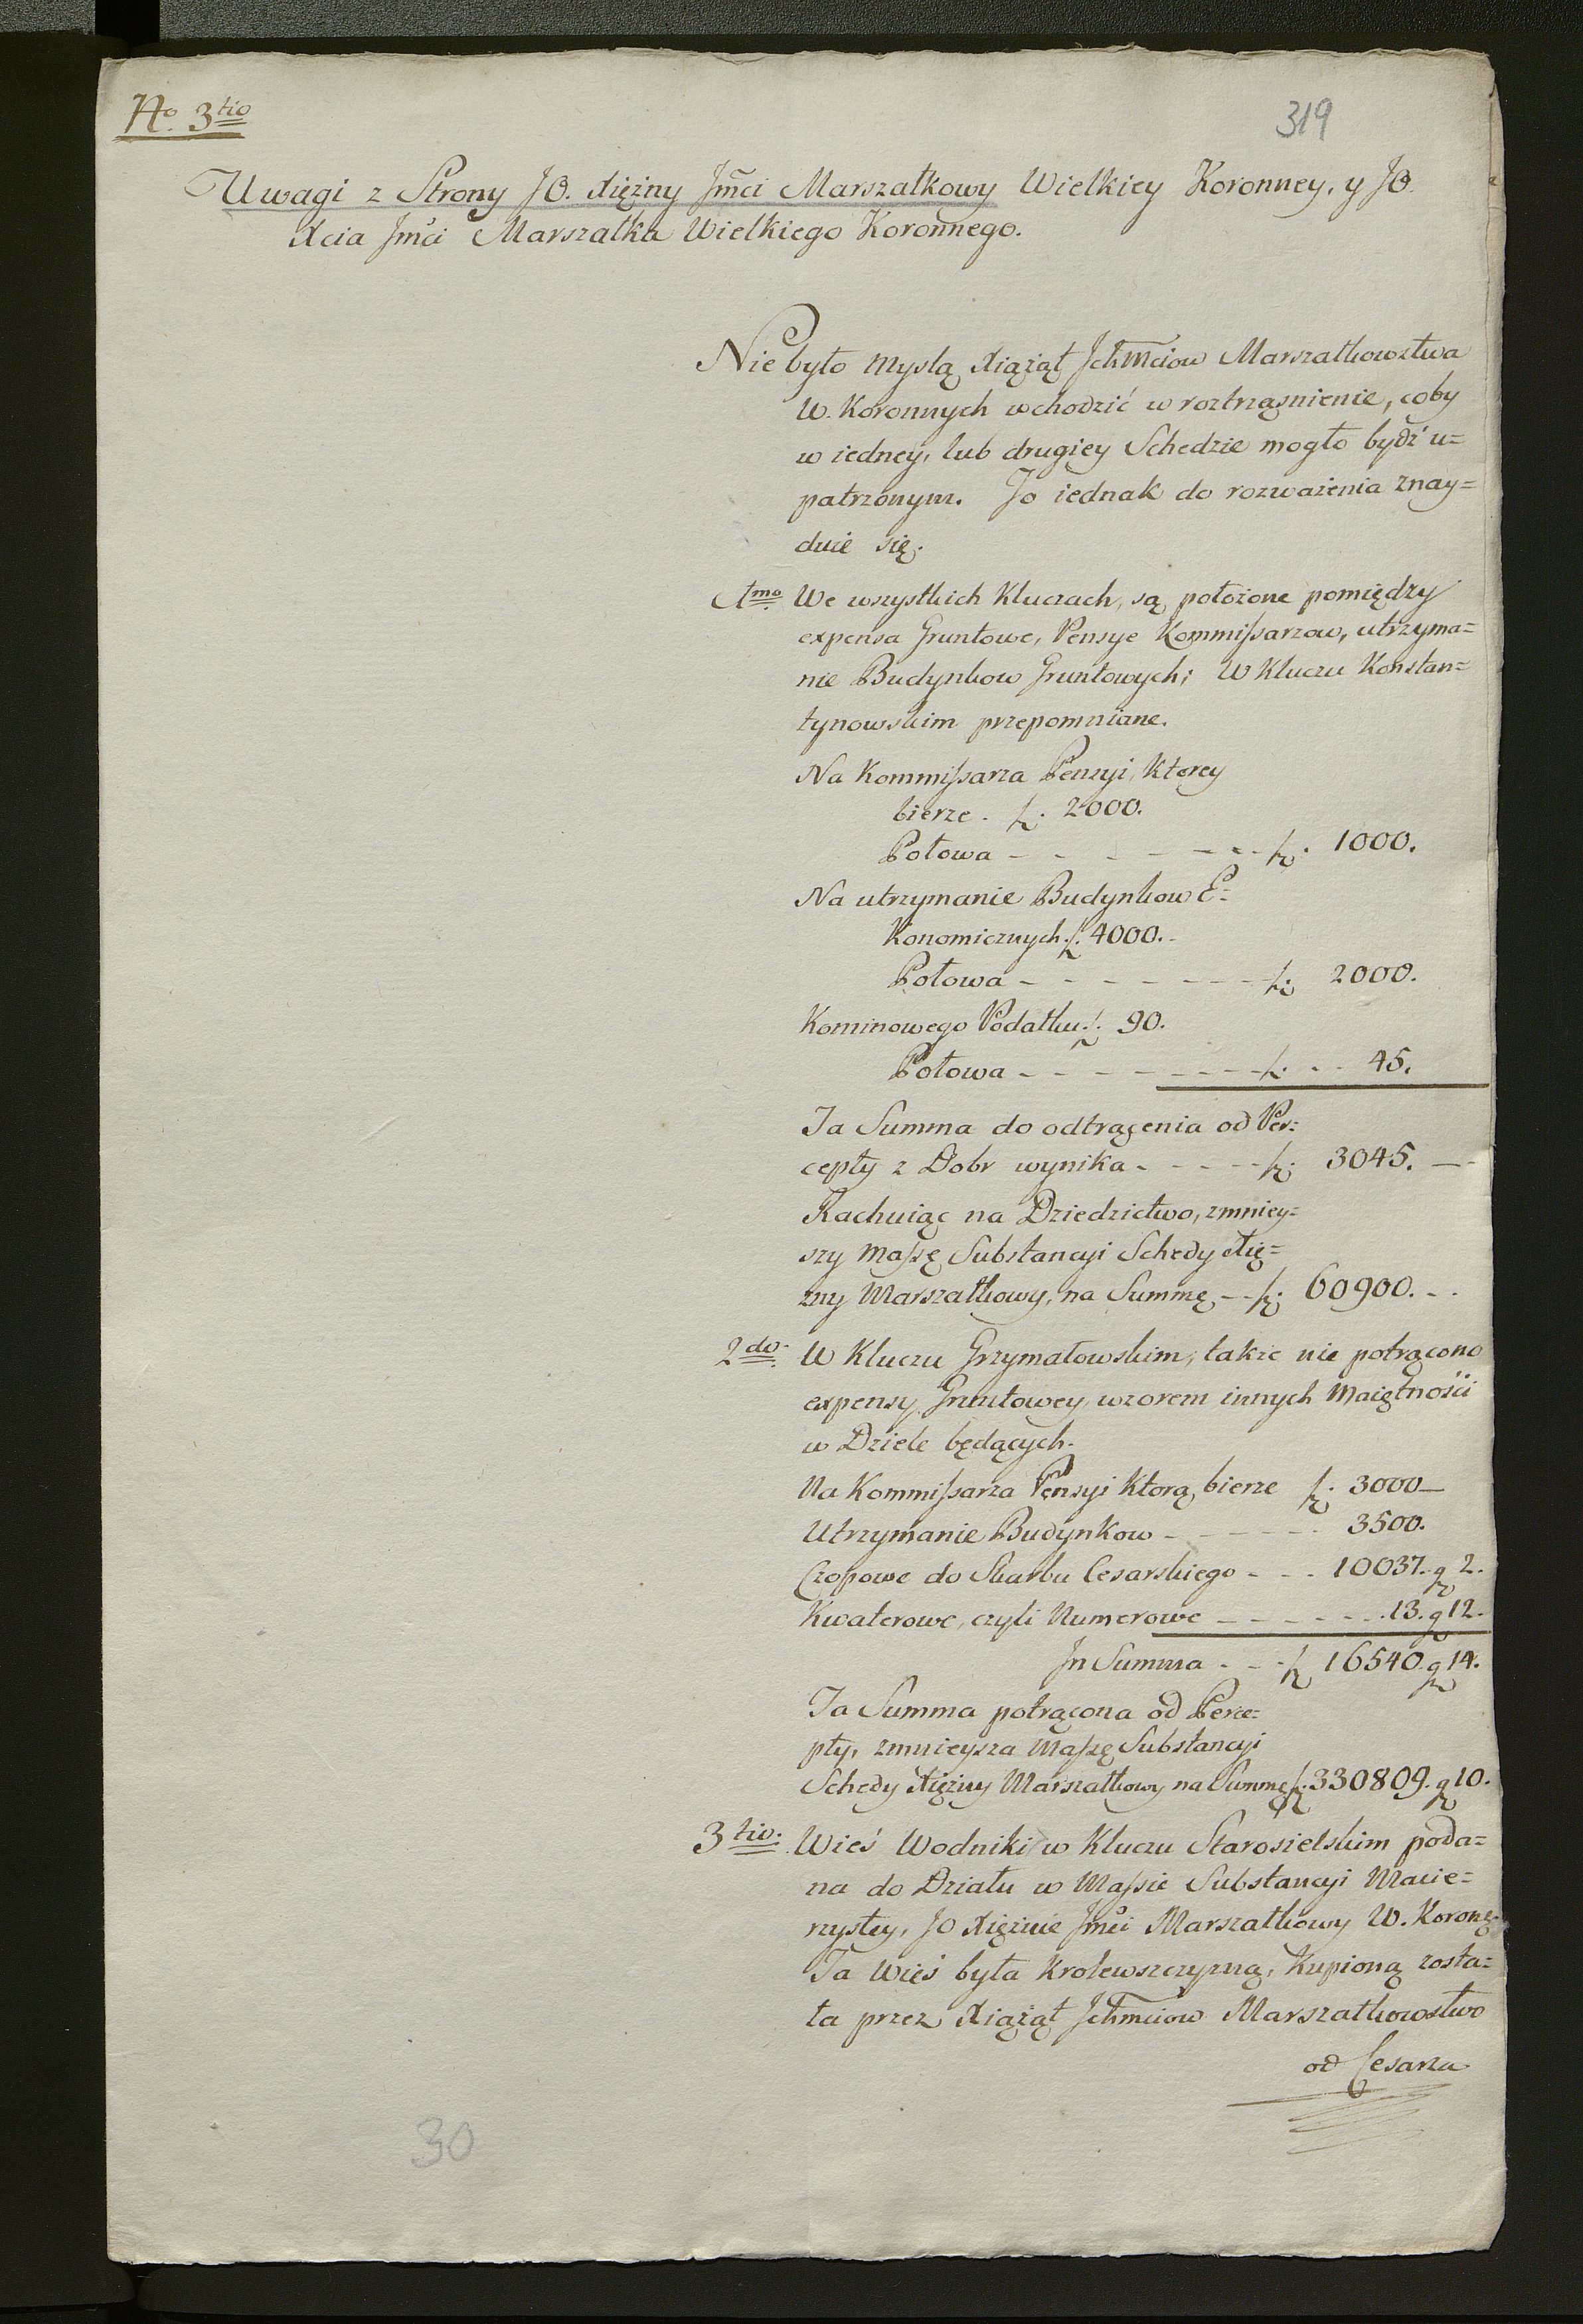 No. 3tio
319
Uwagi z Strony JO. Xiężny Jmci Marszałkowy Wielkiey Koronney, y JO.
Xcia Jmci Marszałka Wielkiego Koronnego.
Nie było myslą Xiążąt Ichmciow Marszałkowstwa
W. Koronnych wchodzić w roztrząsnienie, coby
w iedney, lub drugiey Schedzie mogło bydź u=
patrzonym. To iednak do rozważenia znay=
duie się.
1mo We wszystkich Kluczach, są położone pomiędzy
expensa Gruntowe, Pensye Kommissarzow, utrzyma=
nie Budynkow Gruntowych; W Kluczu Konstan=
tynowskim przepomniane.
Na Kommissarza Pensyi, Ktorey
bierze. f. 2000.
Połowa - - - - - - - f. 1000.
Na utrzymanie Budynkow E=
Konomicznych. f. 4000.-
Połowa - - - - - - - f. 2000.
Kominowego Podatku f. 90.
Połowa - - - - - - - f. - - 45.
Ta Summa do odtrącenia od Per=
cepty z Dobr wynika - - - - f. 3045. —
Rachuiąc na Dziedzictwo, zmniey=
szy massę Substancyi Schedy Xię=
żny Marszałkowy, na Summę - - f. 60900. - -
2do. W Kluczu Grzymałowskim, także nie potrącono
expensy Gruntowey, wzorem innych Maiętności
w Dziele będących.
Na Kommissarza Pensyi Ktorą bierze f. 3000—
Utrzymanie Budynkow - - - - - - 3500.
Czopowe do Skarbu Cesarskiego - - - 10037. g 2.
Kwaterowe, czyli Numerowe - - - - - - 13. g 12.
Jn Summa - - - f 16540. g 14.
Ta Summa potrącona od Perce=
pty, zmnieysza Massę Substancyi
Schedy Xiężny Marszałkowy na Summę f. 330809. g 10.
3tio. Wieś Wodniki w Kluczu Starosielskim poda=
na do Działu w Massie Substancyi Macie=
rzystey, JO Xiężnie Jmci Marszałkowy W. Koronę.
Ta Wieś była Krolewszczyzną, Kupioną zosta=
ła przez Xiążąt Ichmciow Marszałkowstwo
od Cesarza
30